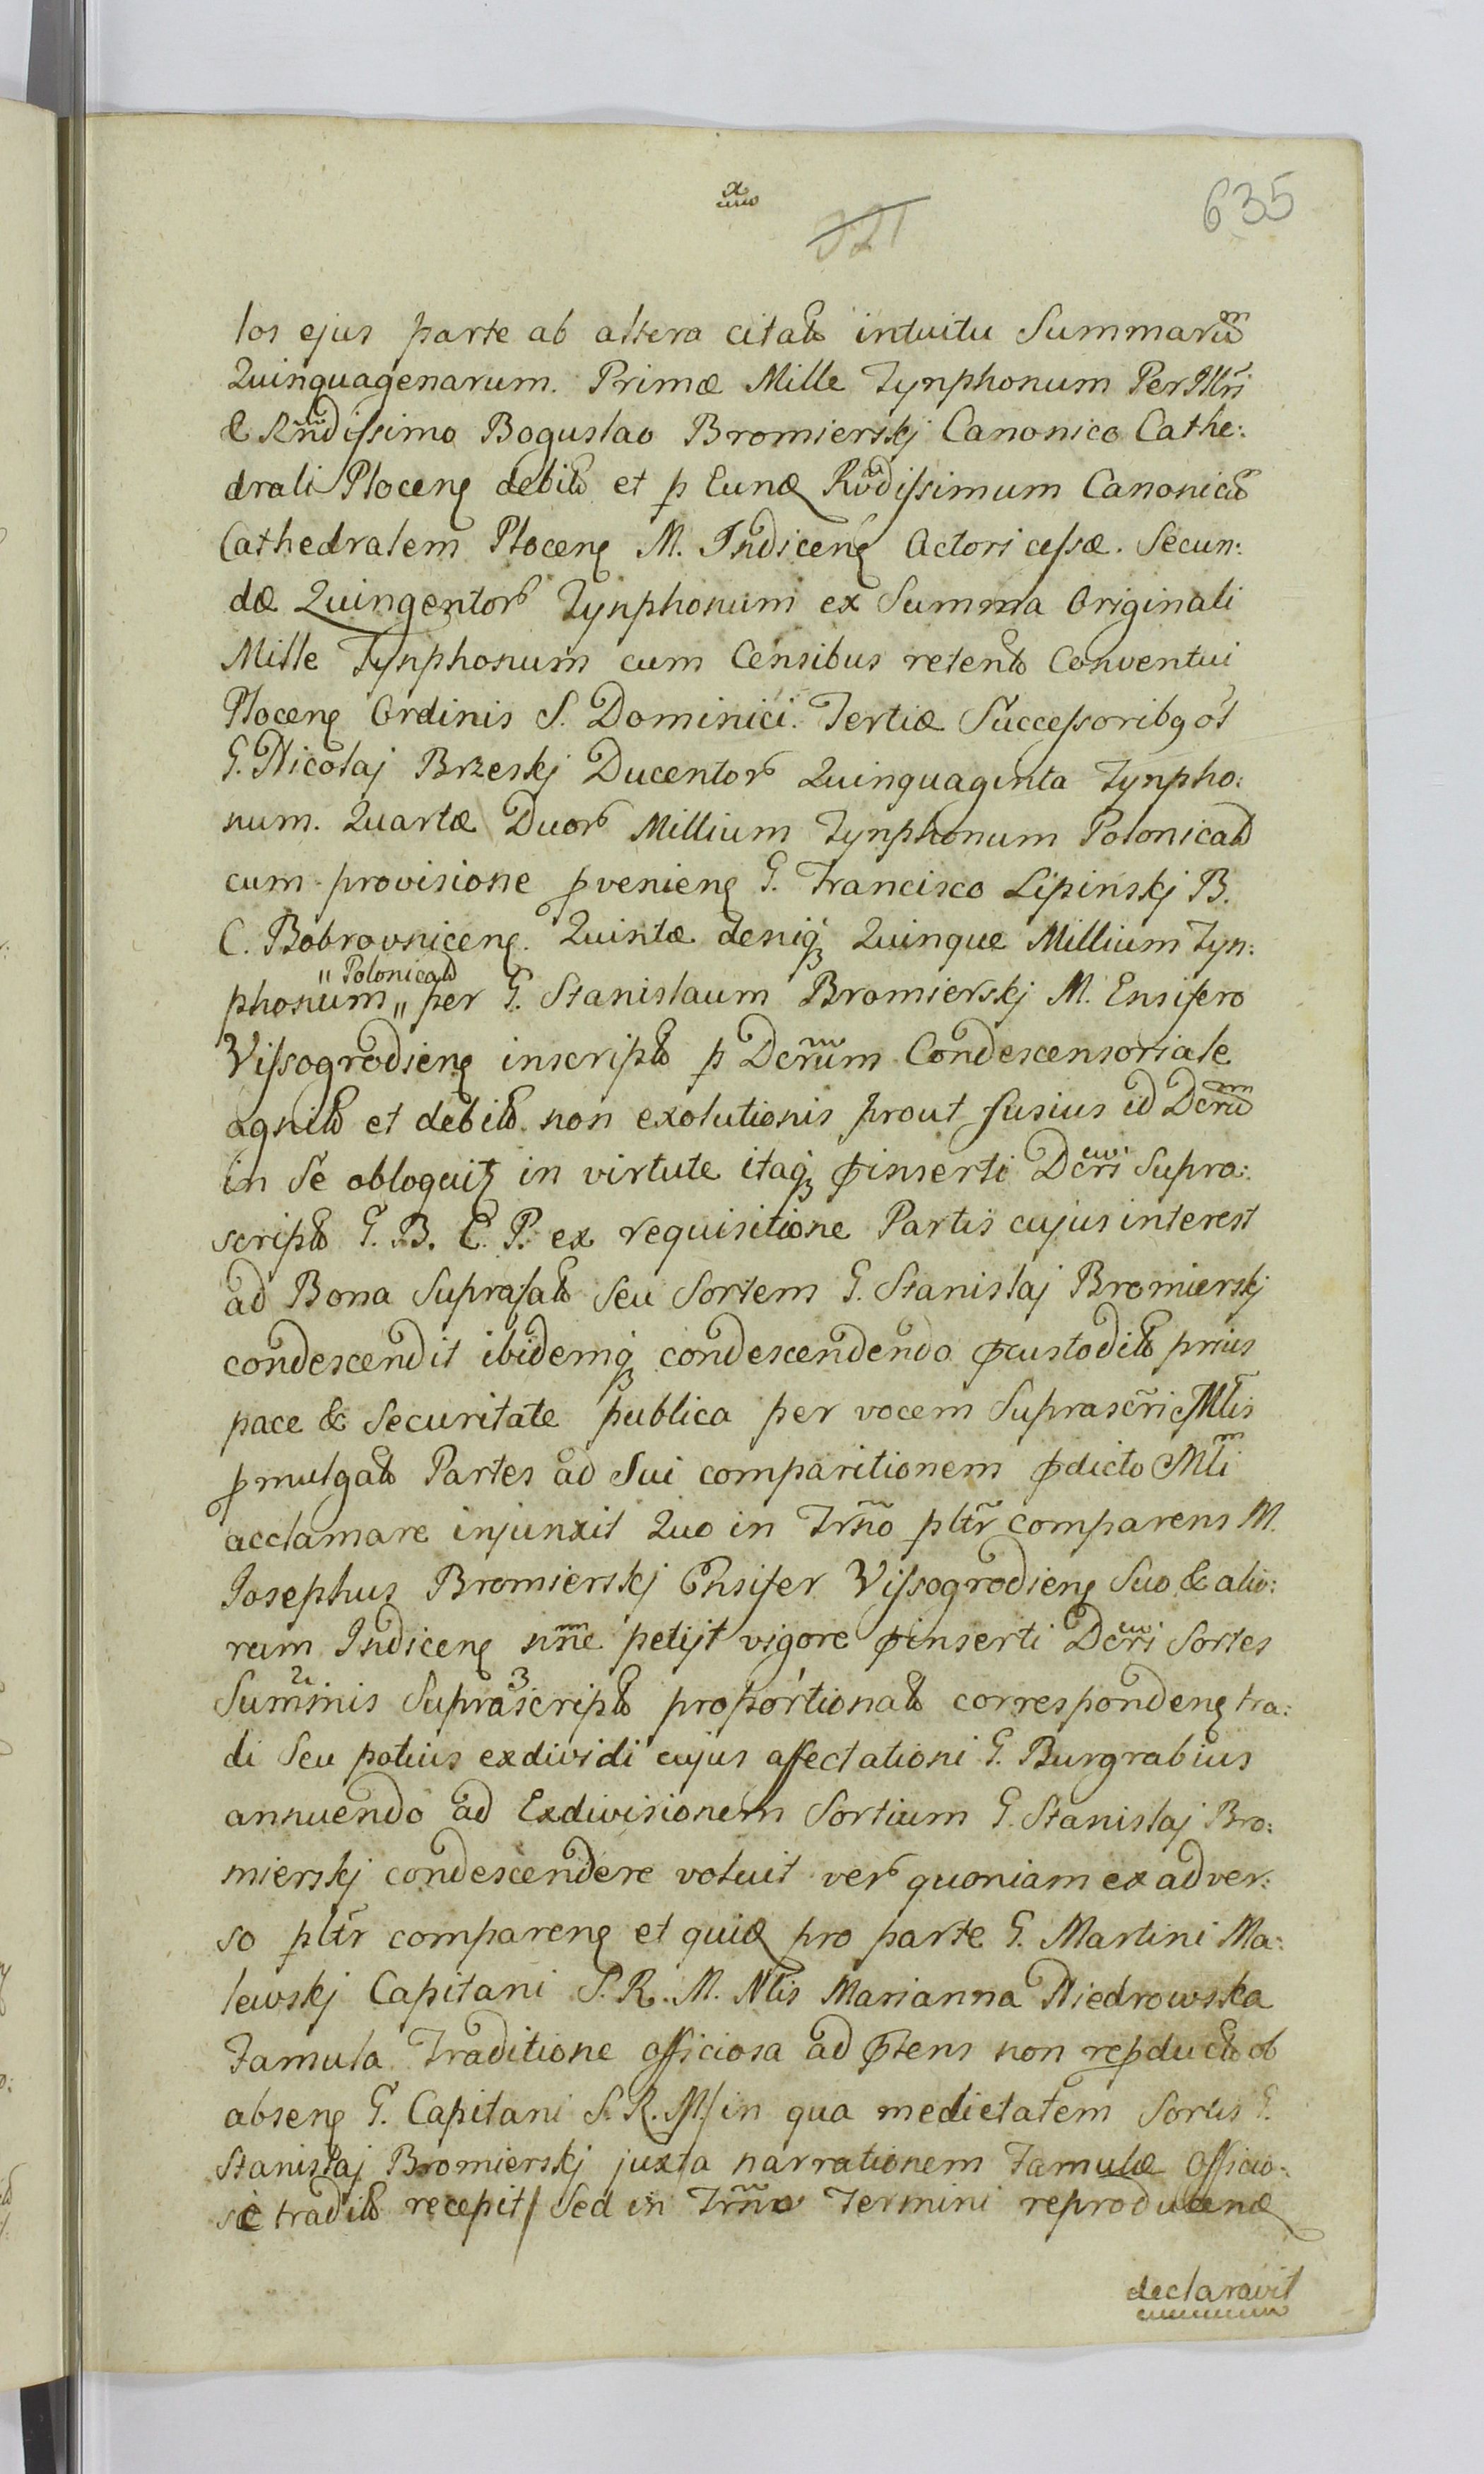 α
321
635
los ejus parte ab altera citat intuitu Summarū
Quinquagenarum. Primæ Mille Tynphonum PerIllri
& Rñdissimo Boguslao Bromierskj Canonico Cathe:
drali Plocen debit et p Eund Rv̄dissimum Canonicū
Cathedralem Plocen M. Indicen Actori cessæ. Secun:
dæ Quingentor Tynphonum ex Summa Originali
Mille Tynphonum cum Censibus retent Conventui
Plocen Ordinis S. Dominici. Tertiæ Successoribq ol
G. Nicolaj Brzeskj Ducentor Quinquaginta Tynpho:
num. Quartæ Duor Millium Tynphonum Polonical
cum provisione pvenien G. Francisco Lipinskj B.
C. Bobrovnicen. Quintæ deniq Quinque Millium Tyn:
" Polonical
phonum " per G. Stanislaum Bromierskj M. Ensifero
Vissogrodien inscript p Dcrum Condescensoriale
agnit et debit non exolutionis prout fusius id Dcrū
in Se obloquit in virtute itaq pinserti Dcri Supra:
script G. B. C. P. ex requisitione Partis cujus interest
ad Bona Suprasat Seu Sortem G. Stanislaj Bromierskj
condescendit ibidemq condescendendo pcustodit prius
pace & Securitate publica per vocem Suprascri Mlis
pmulgat Partes ad Sui comparitionem pdicto Mli
acclamare injunxit Quo in Trño pltr comparens M.
Josephus Bromierskj Ensifer Vissogrodien Suo & alio:
rum Indicen nñe petijt vigore pinserti Dcri Sortes
Summis 2 Suprascript 3 proportionat corresponden tra:
di Seu potius exdividi cujus affectationi G. Burgrabius
annuendo ad Exdivisionem Sortium G. Stanislaj Bro:
mierskj condescendere voluit ver quoniam ex adver:
so pltr comparen et quid pro parte G. Martini Ma:
lewskj Capitani S. R. M. Nlis Marianna Niedrowska
Famula Traditione officiosa ad ptens non repduct ob
absen G. Capitani S. R. M / in qua medietatem Sortis G.
Stanislaj Bromierskj juxta narrationem Famulæ Officio:
se tradit recepit / Sed in Trño Termini reproducend
declaravit